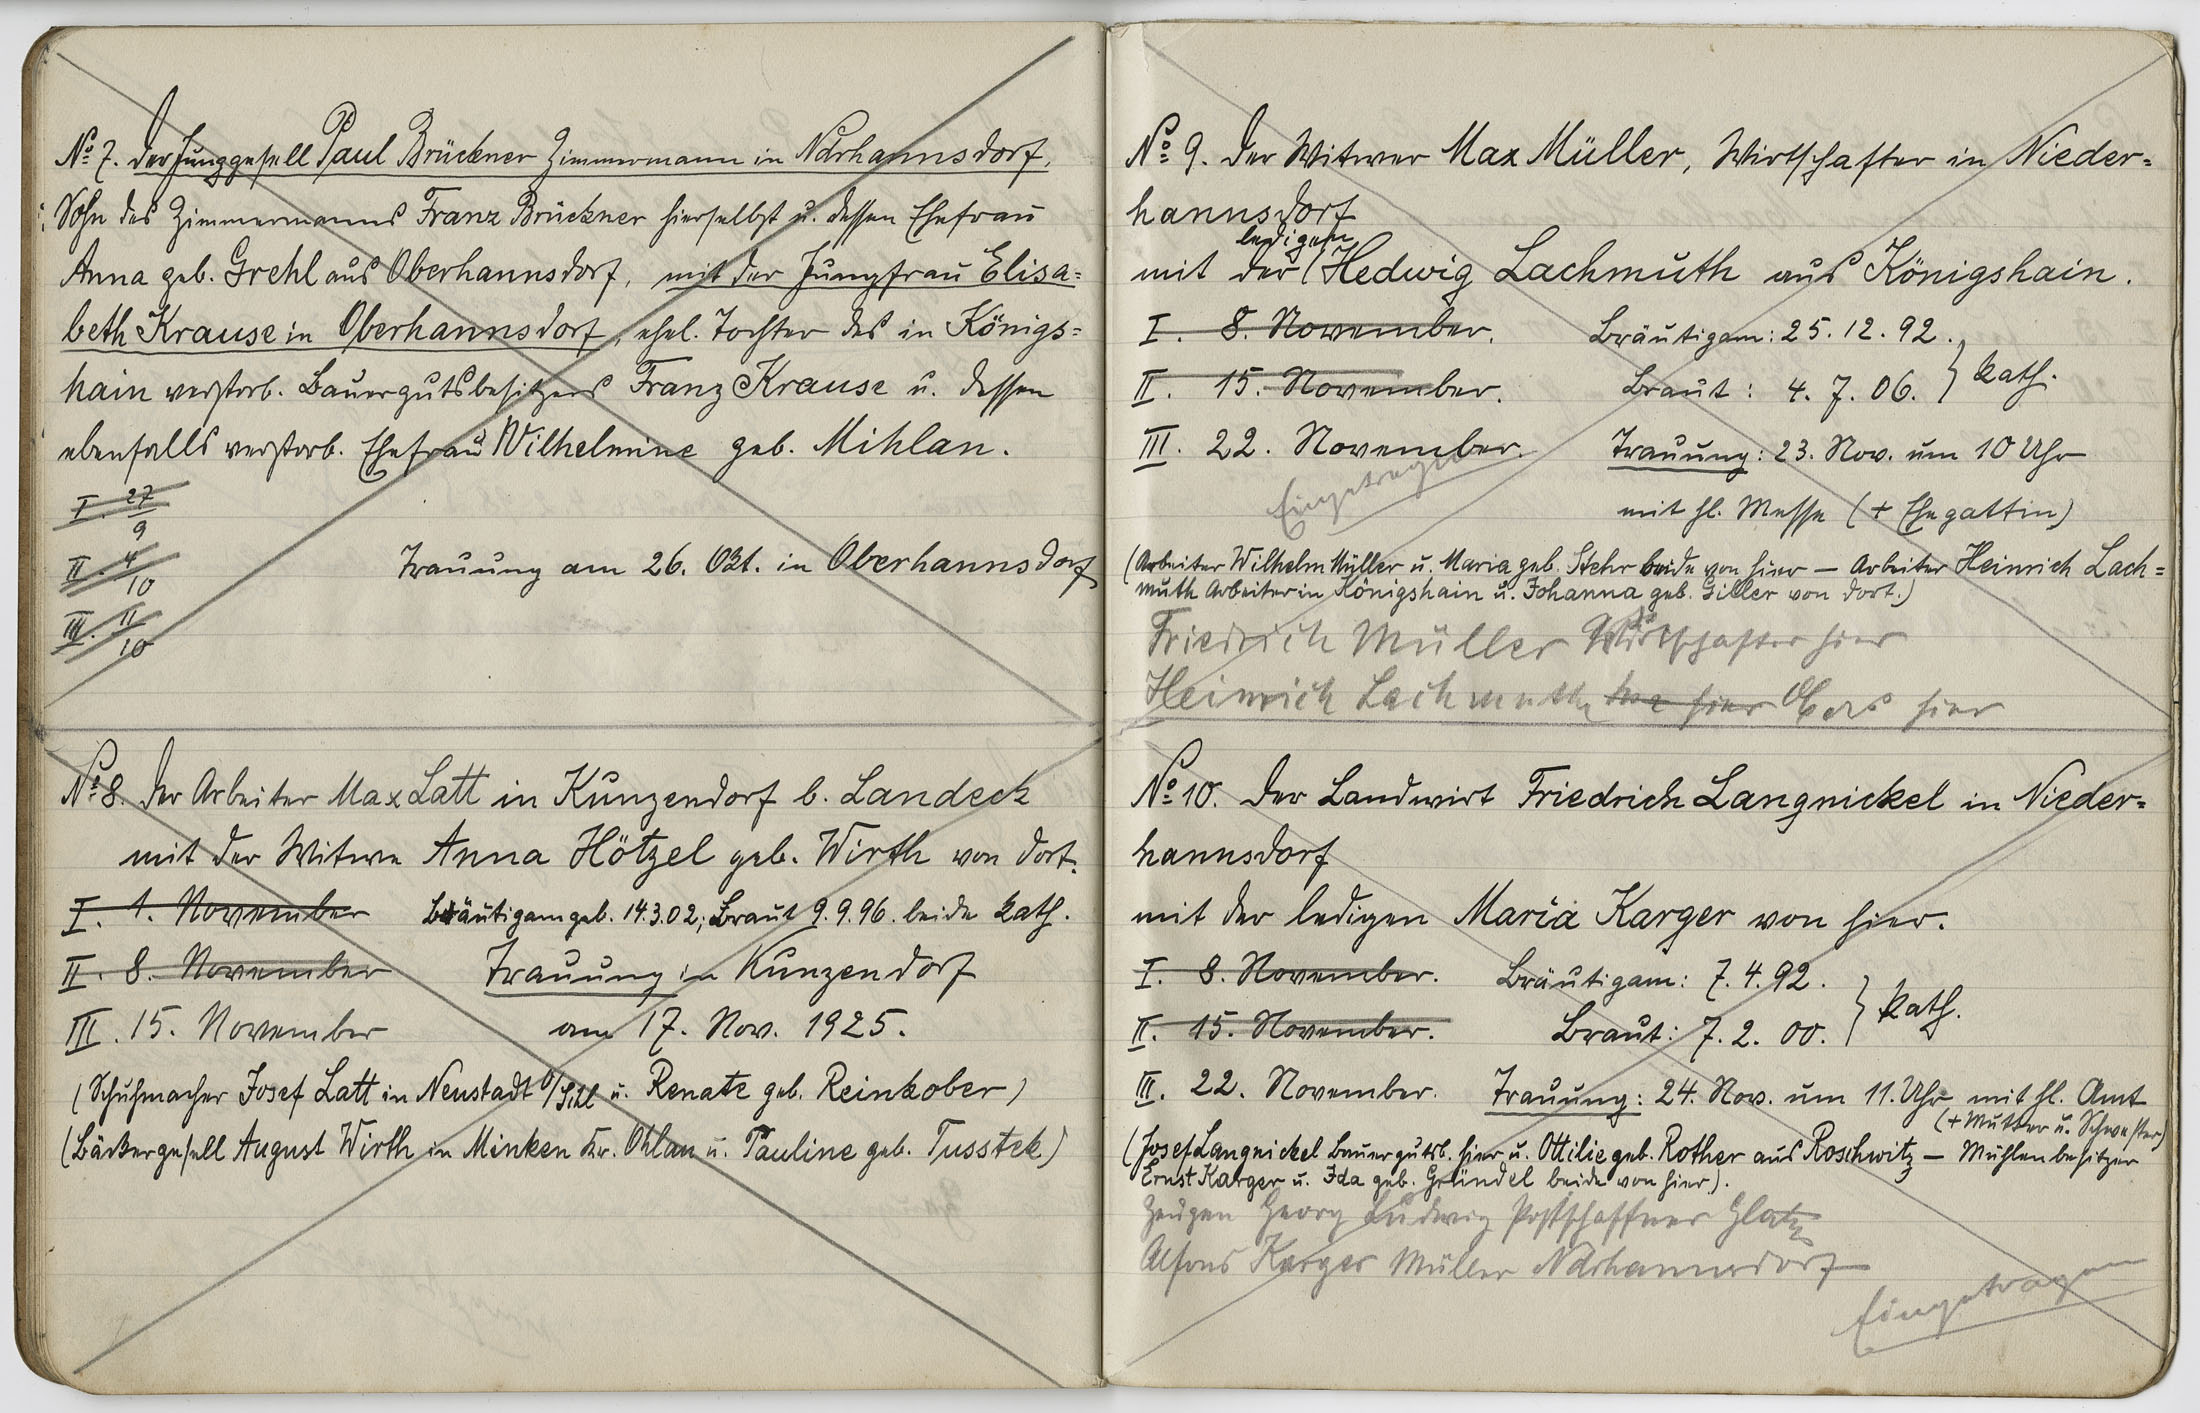 No 7. Der Junggesell Paul Brückner Zimmermann in Ndrhannsdorf,
Sohn des Zimmermanns Franz Brückner hierselbst u. dessen Ehefrau
Anna geb. Grehl aus Oberhannsdorf, mit der Jungfrau Elisa=
beth Krause in Oberhannsdorf, ehel. Tochter des in Königs=
hain verstorb. Bauergutsbesitzers Franz Krause u. dessen
ebenfalls verstorb. Ehefrau Wilhelmine geb. Mihlan.
I. 27/9
II. 4/10
Trauung am 26. Okt. in Oberhannsdorf
III. 11/10
No 8. Der Arbeiter Max Latt in Kunzendorf b. Landeck
mit der Witwe Anna Hötzel geb. Wirth von dort.
I. 1. November Bräutigam geb. 14.3.02; Braut 9.9.96. beide kath.
II. 8. November Trauung in Kunzendorf
III. 15. November am 17. Nov. 1925.
(Schuhmacher Josef Latt in Neustadt O/Schl u. Renate geb. Reinkober)
(Bäckergesell August Wirth in Minken Kr. Ohlau u. Pauline geb. Tusstek)
No 9. Der Witwer Max Müller, Wirtschafter in Nieder=
hannsdorf
ledigen
mit der Hedwig Lachmuth aus Königshain.
I. 8. November. Bräutigam: 25.12.92.
II. 15. November. Braut: 4.7.06. } kath.
III. 22. November. Trauung: 23. Nov. um 10 Uhr
Eingetragen
mit hl. Messe (+ Ehegattin)
(Arbeiter Wilhelm Müller u. Maria geb. Stehr beide von hier – Arbeiter Heinrich Lach=
muth Arbeiter in Königshain u. Johanna geb. Giller von dort.)
Friedrich Müller Wirtschafter hier
Heinrich Lachmuth hier
No 10. Der Landwirt Friedrich Langnickel in Nieder=
hannsdorf
mit der ledigen Maria Karger von hier.
I. 8. November. Bräutigam: 7.4.92.
II. 15. November. Braut: 7.2.00. } kath.
III. 22. November. Trauung: 24. Nov. um 11. Uhr mit hl. Amt
(+ Mutter u. Schwester)
(Josef Langnickel Bauergutsb. hier u. Ottilie geb. Rother aus Roschwitz – Mühlenbesitzer
Ernst Karger u. Ida geb. Gründel beide von hier).
Zeugen Georg Ludwig Postschaffner Glatz
Alfons Karger Müller Ndrhannsdorf
Eingetragen